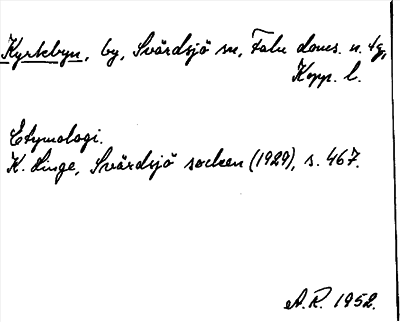 Kyrkbyn, by, Svärdsjö sn, Falu doms. n. tg,
Kopp. l.
Etymologi.
K. Linge, Svärdsjö socken (1929), s. 467.
A. R. 1952.